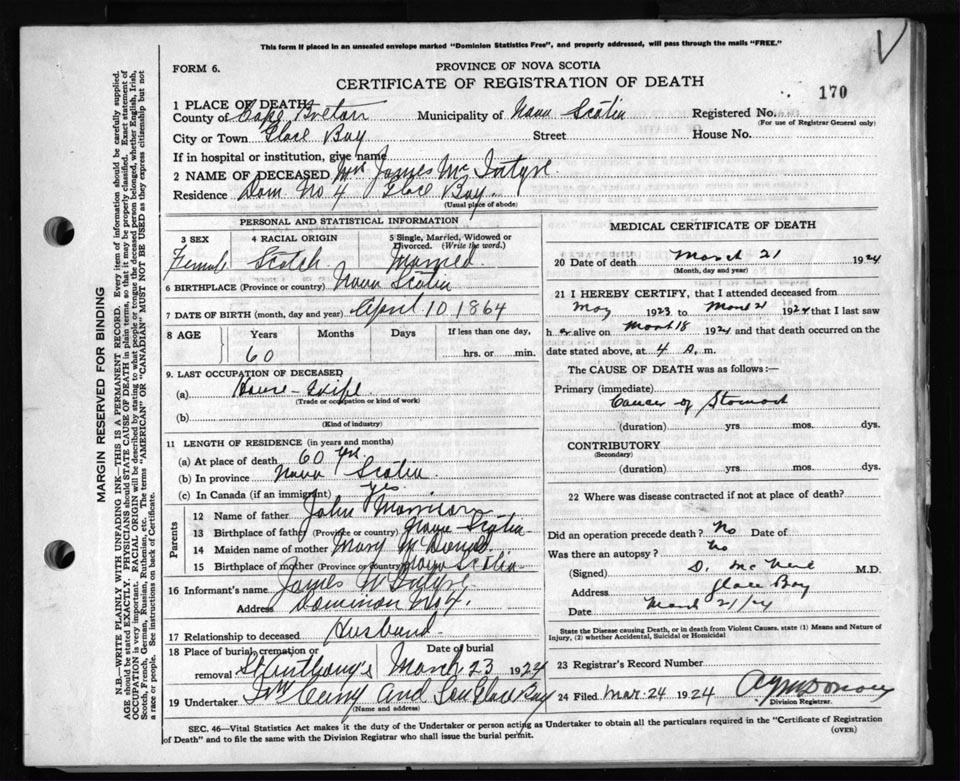 This form if placed in an unsealed envelope marked "Dominion Statistics Free", and properly addressed, will pass through the mails "FREE."
FORM 6.
PROVINCE OF NOVA SCOTIA
CERTIFICATE OF REGISTRATION OF DEATH
170
MARGIN RESERVED FOR BINDING
N.B.—WRITE PLAINLY WITH UNFADING INK—THIS IS A PERMANENT RECORD. Every item of information should be carefully supplied.
AGE should be stated EXACTLY. PHYSICIANS should STATE CAUSE OF DEATH in plain terms, so that it may be properly classified. Exact statement of
OCCUPATION is very important. RACIAL ORIGIN will be described by stating to what people or tongue the deceased person belonged, whether English, Irish,
Scotch, French, German, Russian, Ruthenian, etc. The terms "AMERICAN" OR "CANADIAN" MUST NOT BE USED as they express citizenship but not
a race or people. See instructions on back of Certificate.
1 PLACE OF DEATH
County of Cape Breton Municipality of Nova Scotia Registered No.
(For use of Registrar General only)
City or Town Glace Bay Street House No.
If in hospital or institution, give name
2 NAME OF DECEASED Mrs James McIntyre
Residence Dom No 4 Glace Bay
(Usual place of abode)
PERSONAL AND STATISTICAL INFORMATION
3 SEX Female
4 RACIAL ORIGIN Scotch
5 Single, Married, Widowed or Divorced. (Write the word.) Married
6 BIRTHPLACE (Province or country) Nova Scotia
7 DATE OF BIRTH (month, day and year) April 10 1864
8 AGE Years Months Days If less than one day,
60 hrs. or min.
9. LAST OCCUPATION OF DECEASED
(a) House-wife
(Trade or occupation or kind of work)
(b)
(Kind of industry)
11 LENGTH OF RESIDENCE (in years and months)
(a) At place of death 60 yrs
(b) In province Nova Scotia
(c) In Canada (if an immigrant) yes
Parents
12 Name of father John Morrison
13 Birthplace of father (Province or country) Nova Scotia
14 Maiden name of mother Mary McDonald
15 Birthplace of mother (Province or country) Nova Scotia
16 Informant's name James McIntyre
Address Dominion No 4.
17 Relationship to deceased Husband
18 Place of burial, cremation or removal St Anthony's Date of burial March 23 1924
19 Undertaker And Son Glace Bay
(Name and address)
MEDICAL CERTIFICATE OF DEATH
20 Date of death March 21 1924
(Month, day and year)
21 I HEREBY CERTIFY, that I attended deceased from
May 1923 to March 21 1924 that I last saw
her alive on March 18 1924 and that death occurred on
date stated above, at 4 a. m.
The CAUSE OF DEATH was as follows:—
Primary (immediate)
Cancer of Stomach
(duration) yrs mos. dys.
CONTRIBUTORY
(Secondary)
(duration) yrs. mos. dys.
22 Where was disease contracted if not at place of death?
Did an operation precede death? No Date of
Was there an autopsy? No
(Signed) D. McNeil M.D.
Address Glace Bay
Date March 21/24
State the Disease causing Death, or in death from Violent Causes, state (1) Means and Nature of
Injury, (2) whether Accidental, Suicidal or Homicidal
23 Registrar's Record Number
24 Filed Mar. 24 1924
Division Registrar.
SEC. 46—Vital Statistics Act makes it the duty of the Undertaker or person acting as Undertaker to obtain all the particulars required in the "Certificate of Registration
of Death" and to file the same with the Division Registrar who shall issue the burial permit.
(OVER)